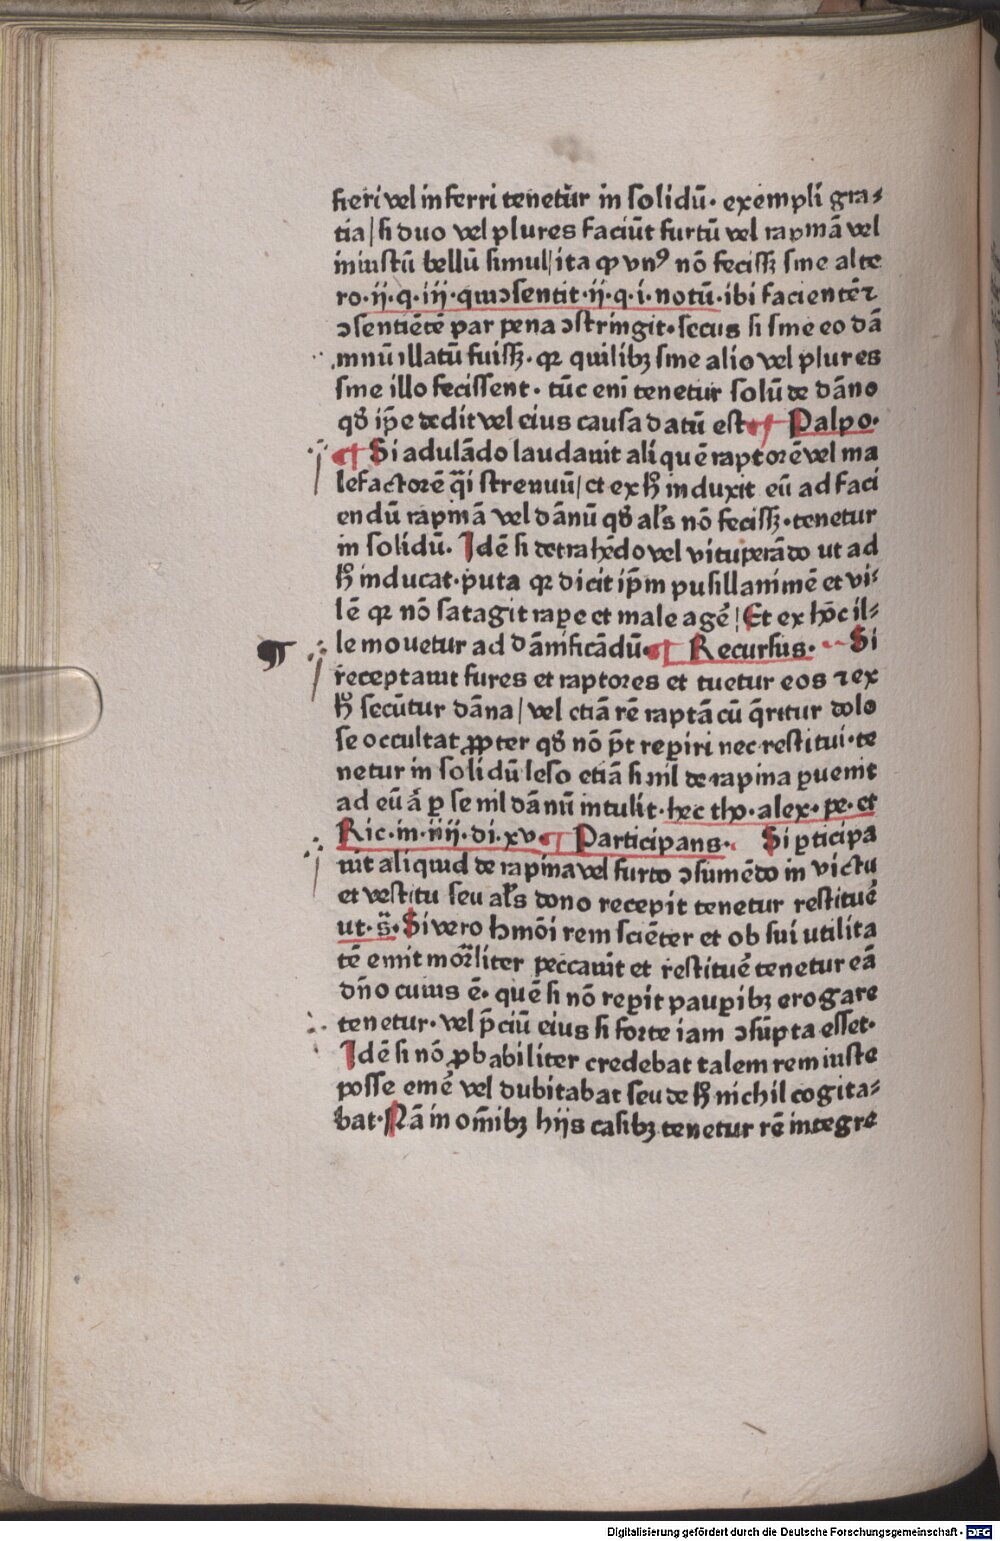 fieri vel inferri tenetur̄ in ſolidū· exempli gra⸗
tia/ſi duo vel plures faciūt furtū vel rapinā vel
iniuſtū bellū ſimul/ita ꝙ vnꝰ nō feciſſꝫ ſine alte
ro·ij·q·iij·qui ↄſentit·ij·q·i·notū·ibi facientē⁊
ↄſentiētē par pena ↄſtringit·ſecus ſi ſine eo dā
mnū illatū fuiſſꝫ· qꝛ quilibꝫ ſine alio vel plures
ſine illo feciſſent· tūc eni̅ tenetur ſolū de dāno
qđ ip̄e dedit vel eius cauſa datū eſt ¶ Palpo·
¶ Si adulādo laudauit aliquē raptorē vel ma
lefactorē q̄ſi ſtrenuū/et ex ħ induxit eū ad faci
endū rapinā vel dānū qđ al̄s nō feciſſꝫ·tenetur
in ſolidū. Idē ſi detrahēdo vel vituperādo ut ad
ħ inducat·puta qꝛ dicit ip̄m puſillanimē et vi⸗
lē qꝛ nō ſatagit rape̱ et male agē/ Et ex hōc il⸗
le mouetur ad dāmificādū·¶ Recurſus· Si
receptauit fures et raptores et tuetur eos ⁊ ex
ħ ſecūtur dāna/vel etiā rē raptā cū q̄ritur dolo
ſe occultat ꝓpter qđ nō p̄t reperiri nec reſtitui·te
netur in ſolidū leſo etiā ſi nil de rapina ꝑuenit
ad eū ⁊ ꝑ ſe nil dānū intulit·hec tho·alex·pe·et
Ric·in·iiij·di·xv·¶ Participans· Si ꝑticipa
uit aliquid de rapina vel furto ↄſumēdo in victu
et veſtitu ſeu al̄s dono recepit tenetur reſtituē
ut·s̄·Si vero hmōi rem ſciēter et ob ſui utilita
tē emit mor̄liter peccauit et reſtituē tenetur eā
dn̄o cuius ē· quē ſi nō reꝑit pauꝑibꝫ erogare
tenetur·vel p̄ciū eius ſi forte iam ↄſūpta eſſet·
Idē ſi nō ꝓbabiliter credebat talem rem iuſte
poſſe emē vel dubitabat ſeu de ħ nichil cogita⸗
bat·Nā in om̄ibꝫ hijs caſibꝫ tenetur rē integre
Digitalisierung gefördert durch die Deutsche Forschungsgemeinschaft - DFG